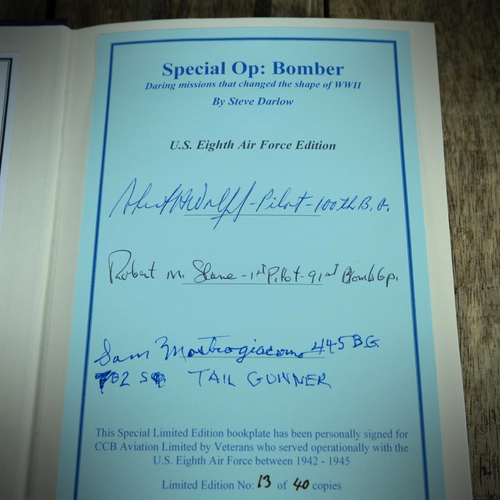 Special Op: Bomber
Daring missions that changed the shape of WWII
By Steve Darlow
U.S. Eighth Air Force Edition
Robert H Wolff - Pilot - 100th B.G.
Robert M. Slane - 1st Pilot - 91st Bomb Gp.
Sam Mastrogiacomo 445 BG
702 SQ TAIL GUNNER
This Special Limited Edition bookplate has been personally signed for
CCB Aviation Limited by Veterans who served operationally with the
U.S. Eighth Air Force between 1942 - 1945
Limited Edition No: 13 of 40 copies